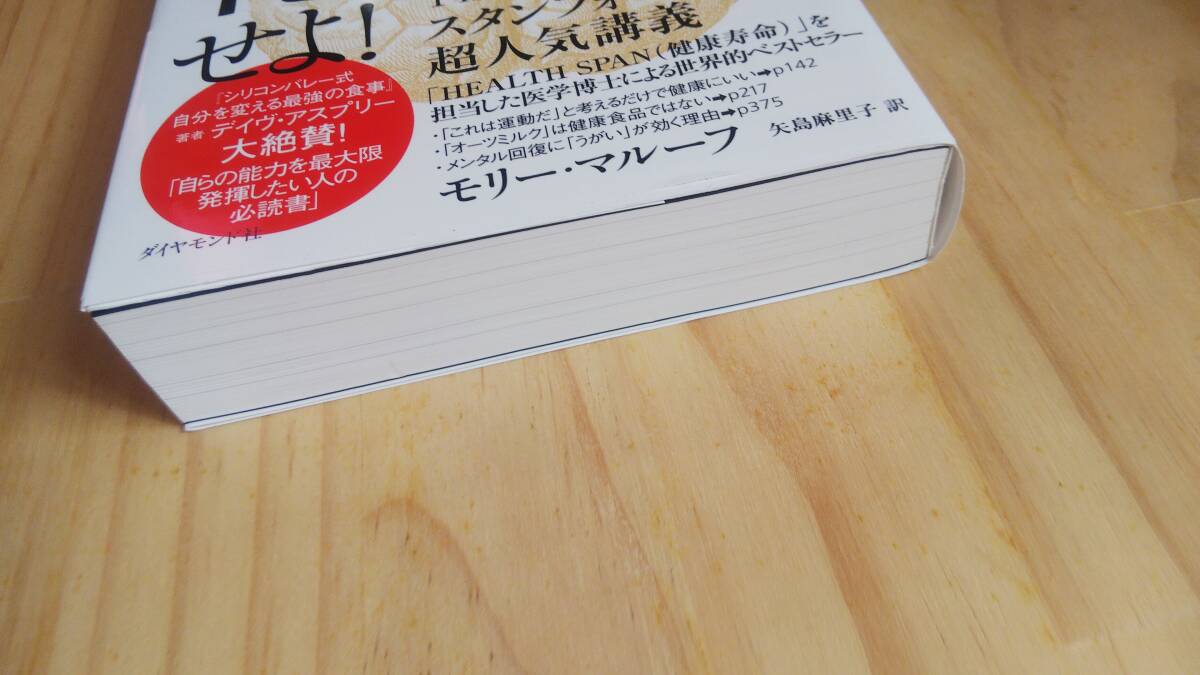 せよ!
スタンフォ
超人気講義
「HEALTH SPAN(健康寿命)」を
担当した医学博士による世界的ベストセラー
・「これは運動だ」と考えるだけで健康にいい➡p142
・「オーツミルク」は健康食品ではない➡p217
・メンタル回復に「うがい」が効く理由➡p375
モリー・マルーフ
矢島麻里子 訳
『シリコンバレー式
自分を変える最強の食事』
著者 デイヴ・アスプリー
大絶賛!
「自らの能力を最大限
発揮したい人の
必読書」
ダイヤモンド社